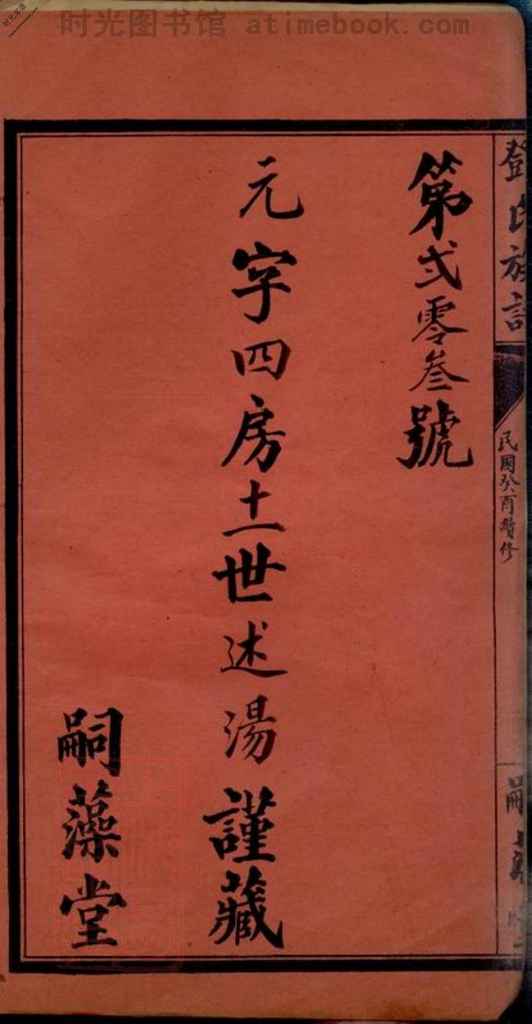 时光图书馆 atimebook.com
鄧氏族譜
民國癸酉續修
第弍零叁號
元字四房十一世述湯謹藏
嗣藻堂